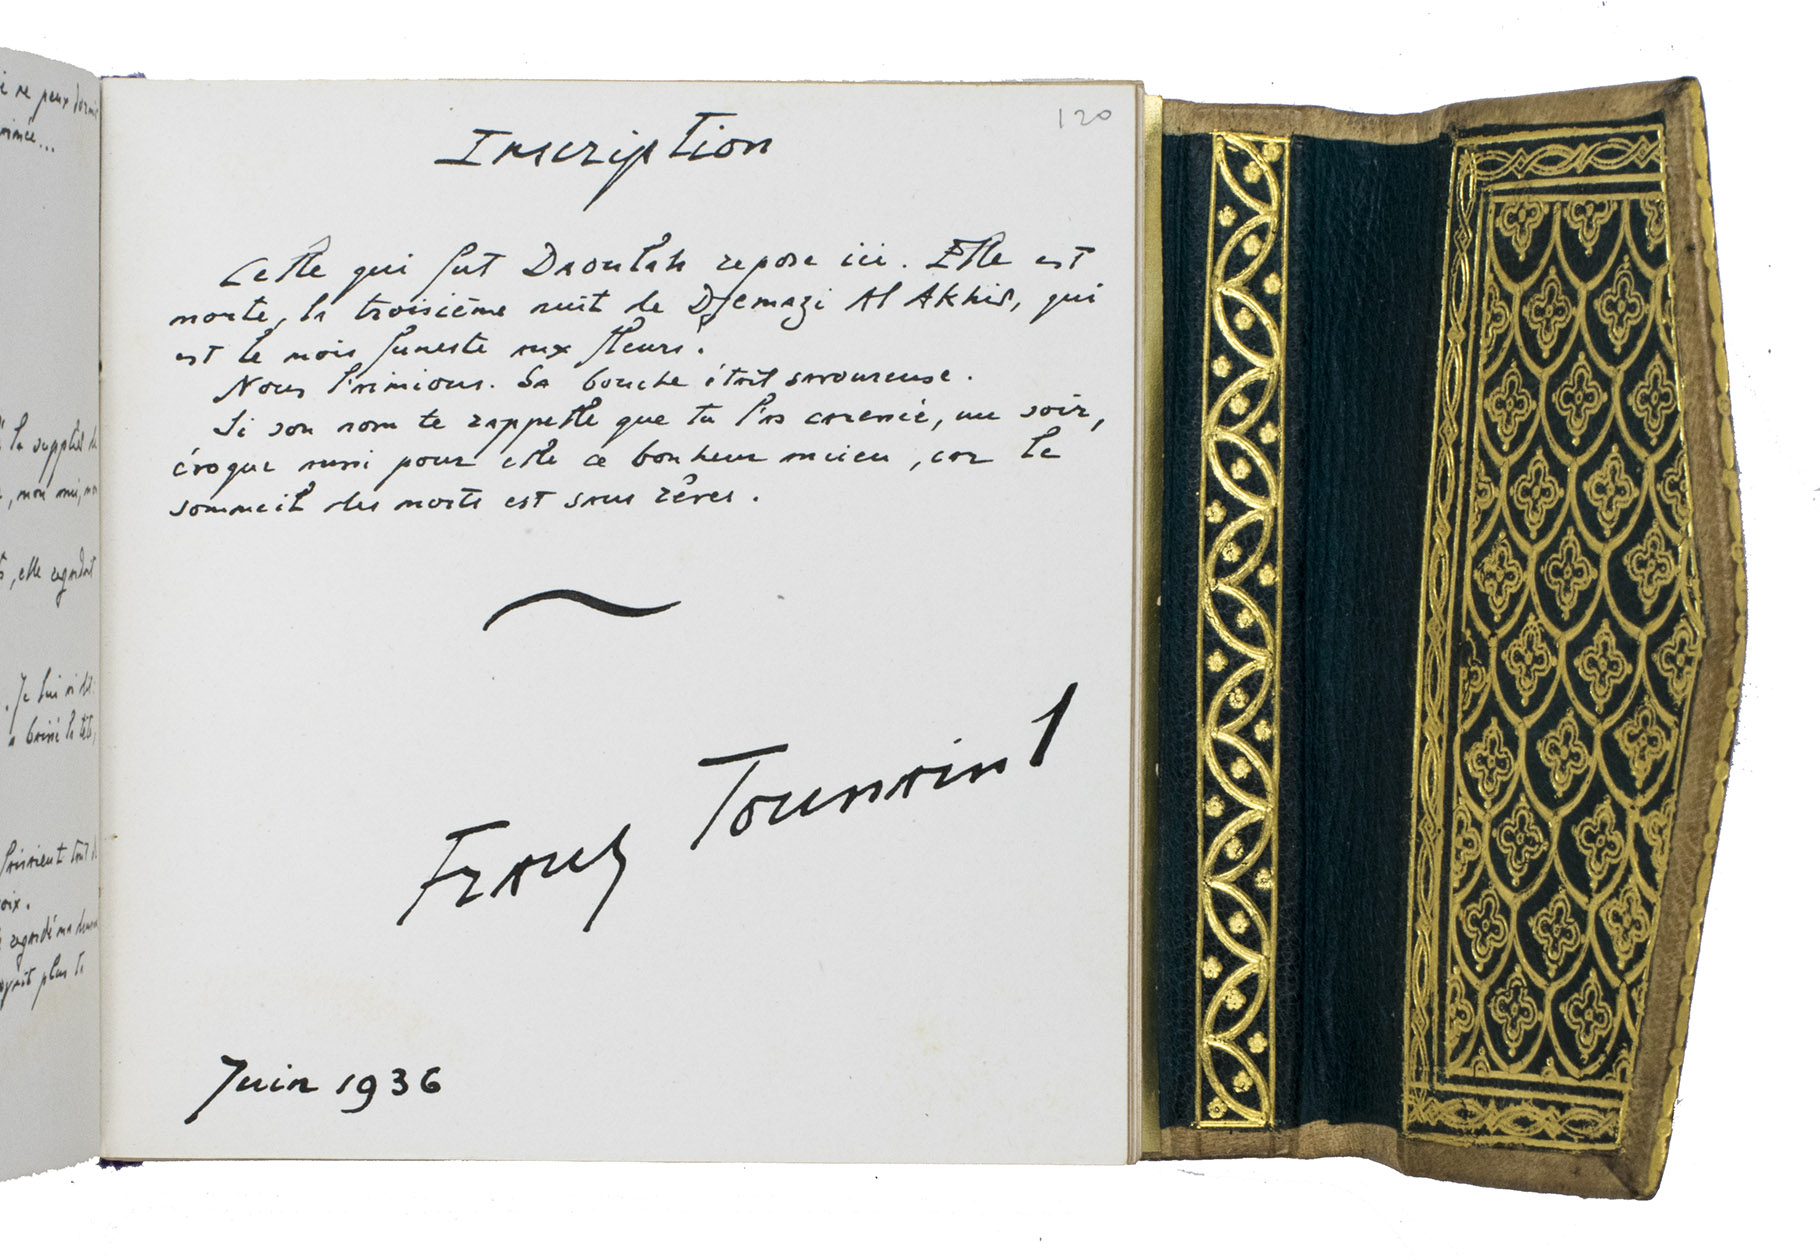 i ne peux dormir
...
la supplié de
, mon ami, mon
, elle regardait
. Je lui ai dit:
a brisé la tête,
faisaient tout de
oix.
regardé ma demeure
plus te
120
Inscription
Celle qui fut Daoulah repose ici. Elle est
morte, la troisième nuit de Djemazi Al Akhir, qui
est le mois funeste aux fleurs.
Nous l'aimions. Sa bouche était savoureuse.
Si son nom te rappelle que tu l'as caressée, un soir,
évoque aussi pour elle ce bonheur ancien, car le
sommeil des morts est sans rêves.
Franz Toussaint
Juin 1936